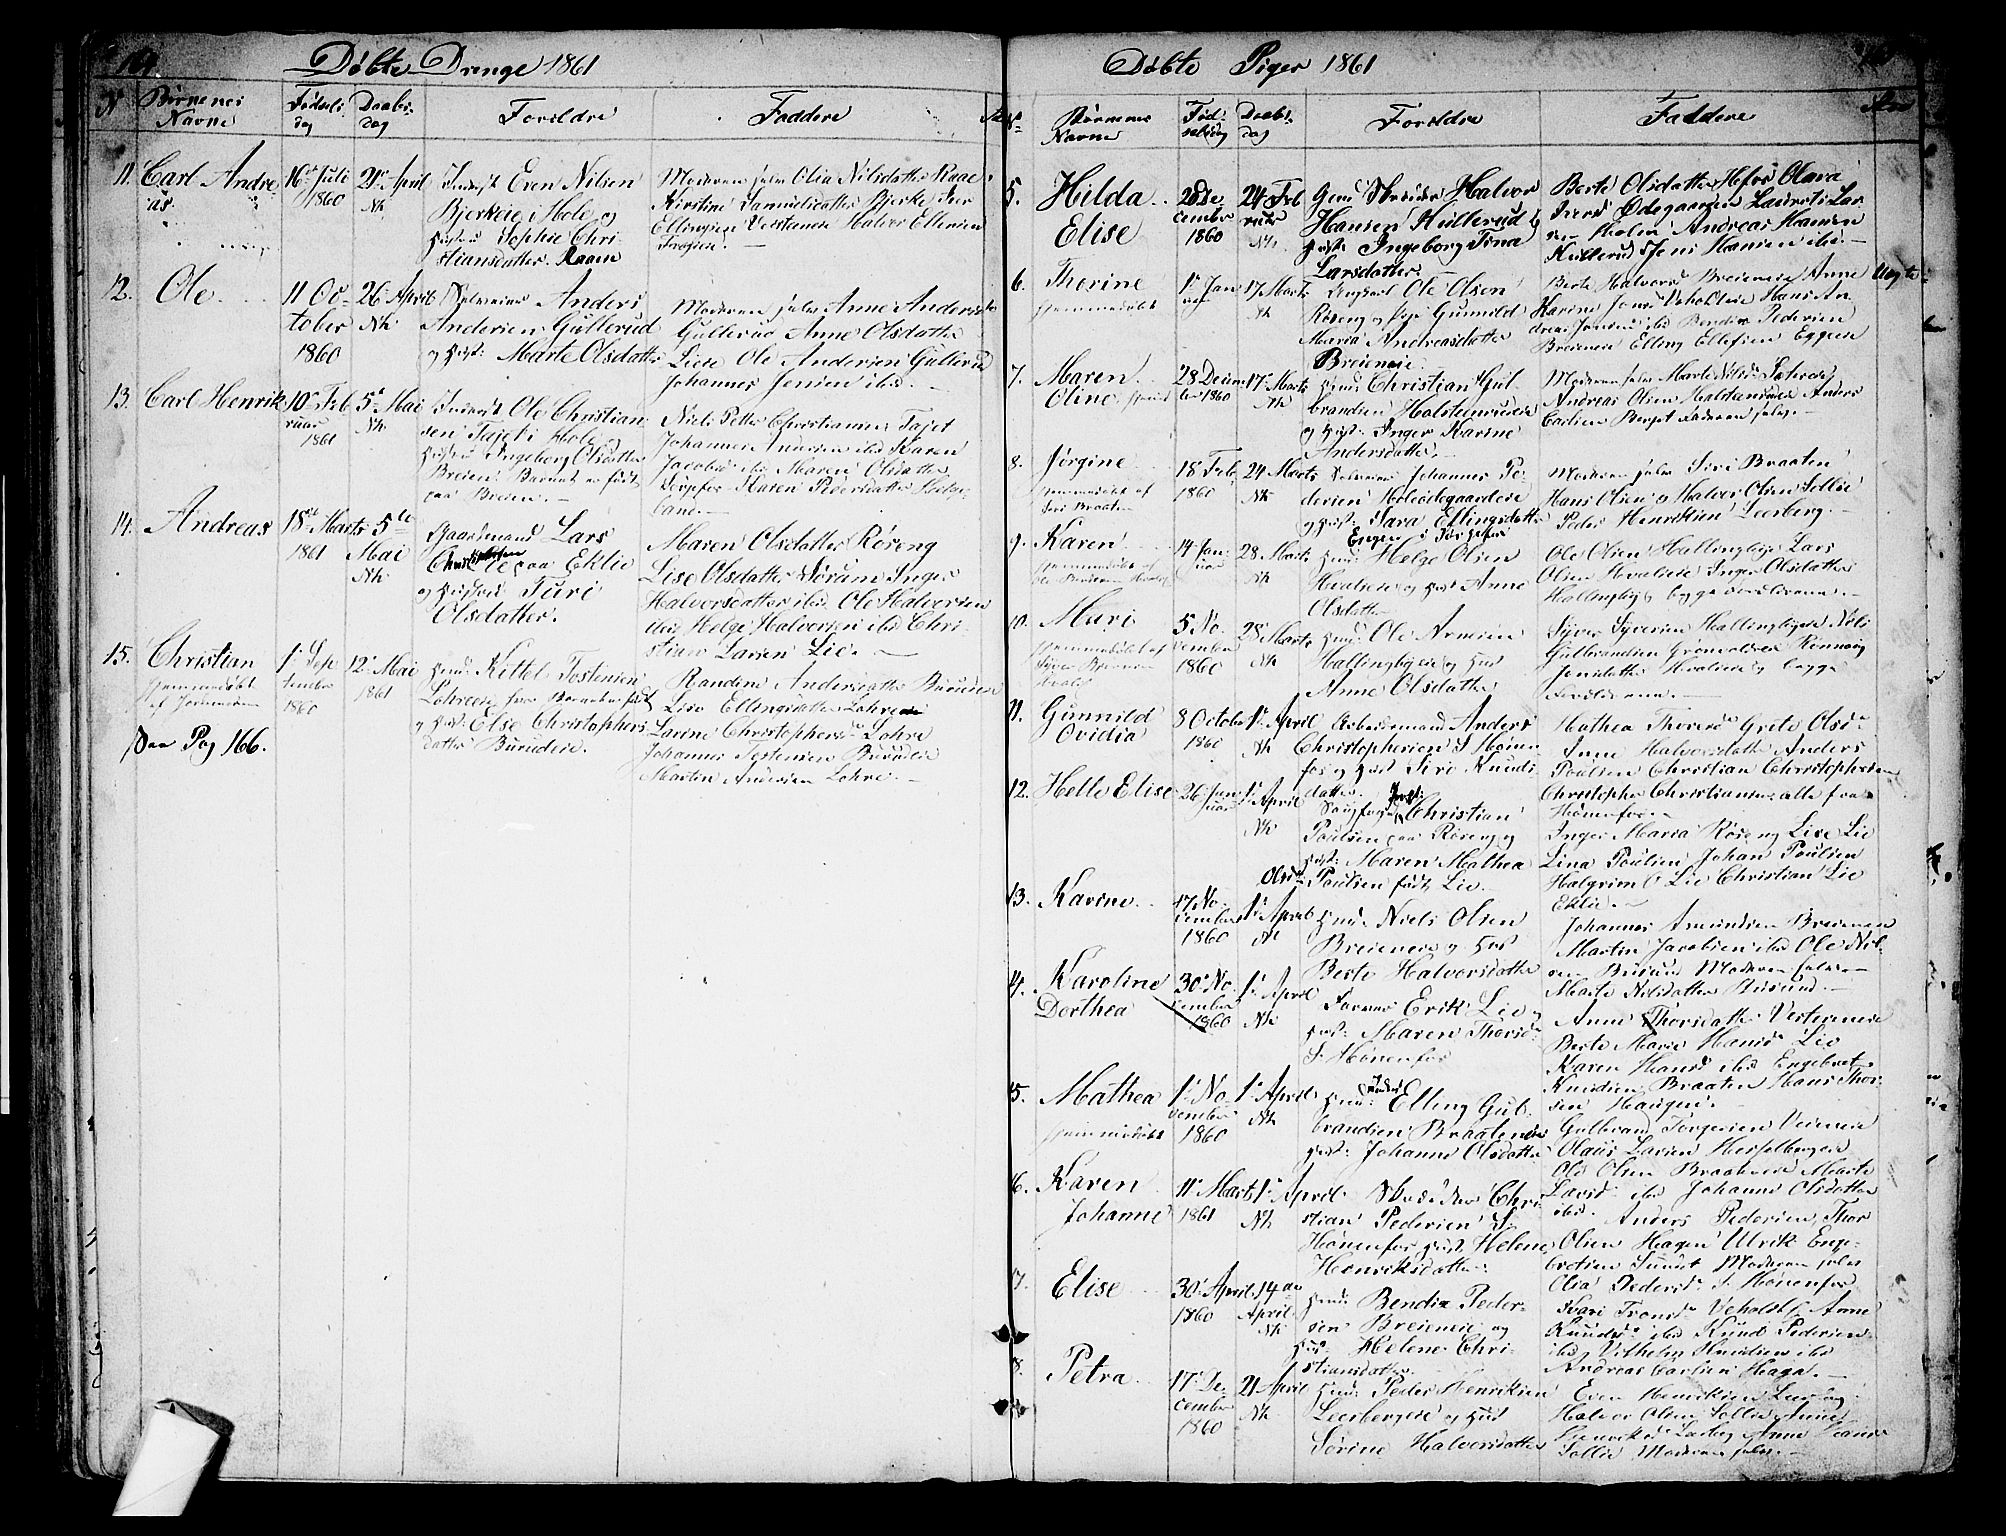 164
Døbte Drenge 1861
N
Børnenes
Navne
Fødsels
dag
Daabs
dag
Forældre
Faddere
11.
Carl Andre
as
16de Juli
1860
21de April
Nk
Even Nilsen
Bjerkeie i Hole og
Sophie Chri-
stiansdatter. Raaen
Moderen selv Olia Nilsdatter Raae
Kirstine Samuelsdatter Bjerke Iver
Ellingsen Vestanaae Halvor Ellensen
12.
Ole
11 Oc-
tober
1860
26 April
Nk
Anders
Andersen Gullerud
og Hust: Marte Olsdatter
Moderen selv Anne Andersda
Gullerud Anne Olsdatter
Lise Ole Andersen Gullerud
Johannes Jensen ibid.
13.
Carl Henrik
10de Feb
ruar
1861
5te Mai
Nk
Inderst Ole Christian
sen Fajet i Hole
Ingeborg Olsdatter
Breien. Barnet er født
paa Breien.
Niels Petter Christiansen Fajet
Johannes Andersen ibid Karen
Jacobsd ibid Maren Olsdatter
Maren Pedersdatter Helge-
land.
14.
Andreas
18de Marts
1861
5te
Mai
Nk
Gaardmand Lars
Christophersen
Lie paa Eklie
og Hustru Turi
Olsdatter.
Maren Olsdatter Røseng
Lise Olsdatter Sørum Inger
Halvorsdatter ibid Ole Halvorsen
ibid Helge Halvorsen ibid Chri-
stian Larsen Lie.
15.
Christian
hjemmedøbt
af Jordmoderen
1. Sep
tember
1860
12te Mai
1861
Huusm: Kittel Tostensen
Lohreeie hvor Barnet er født
og Hust: Else Christophers
datter Burudeie.
Randine Andersdatter Burudeie
Lise Ellingsdatter Lohre
Larine Christophersda Lohre
Johannes Tostensen Burudeie
Martin Andersen Lohre.
paa Pag 166.
Døbte Piger 1861
N
Børnenes
Navne
Fød-
selsdag
Daabs-
dag
Forældre
Faddere
Anm
5.
Hilda
Elise
26 De
cember
1860
24 Feb
ruar
Nk
Gmd Skræder Halvor
Hansen Kullerud og
Hust: Ingeborg Tina
Larsdatter.
Berte Olsdatter Hofos Olava
Iversd Ødegaarden Laurits Lar
sen Holm Andreas Hansen
Kullerud Jens Hansen ibid.
6.
Thorine
hjemmedøbt
1. Jan
uar
17 Marts
Nk
Ungkarl Ole Olsen
Røseng og Pige Gunnild
Maria Andreasdatter
Breieneie.
Berte Halvorsd Breieneie Anne
Karine Jensd Veholdteie Hans An
dreas Jensen ibid Bendix Pedersen
Breieneie Elling Ellefsen Eggeie
Uægte
7.
Maren
Oline
28 Decem
ber 1860
17 Marts
Nk
Huusm: Christian Gul
brandsen Halstenrudeie
og Hust: Inger Karine
Andersdatter.
Moderen selv Marte Nilsd
Andreas Olsen Halstenrudeie Anders
Carlsen Berget Faderen selv.
8.
Jørgine
hjemmedøbt af
Siri Braaten
18 Feb
1860
24 Marts
Nk
Selveier Johannes Pe
dersen Moløidegaardeie
og Hust: Sara Ellingsdatter
Moderen selv Siri Braaten
Hans Olsen og Halvor Olsen Sollie
Peder Henriksen Leerberg.
9.
Karen
hjemmedøbt af
14 Jan
uar
28 Marts
Nk
Engen i Jørgefos
Huusm: Helge Olsen
Hvalseie og Hust Anne
Olsdatter
Ole Olsen Hallingbyeie Lars
Olsen Hvalseie Inger Olsdatter
Hallingby og begge Forældrene.
10.
Muri
hjemmedøbt af
Syver Bjørnsen
5 No
vember
1860
28 Marts
Nk
Huusm: Ole Arnesen
Hallingbyeie og Hust
Anne Olsdatter
Syver Syversen Hallingbyeie Nils
Gulbrandsen Grønvoldseie Rønnaug
Jonsdatter Hvalseie og begge
Forældrene.
11.
Gunnild
Ovidia
8 October
1860
1. April
Nk
Arbeidsmand Anders
Christophersen S. Hønen
fos og Hust Siri Knuds
datter.
Mathea Thoresd Grete Olsd
Anne Halvorsdatter Anders
Poulsen Christian Christophersen
Christopher Christiansen alle fra
Hønenfos.
12.
Helle Elise
26 Jan
uar
1. April
Nk
Saugfoged Christian
Poulsen paa Røseng og
Hust: Maren Mathea
Olsd: Poulsen født Lie.
Inger Maria Røseng Lise Lie
Lina Poulsen Johan Poulsen
Halgrim O Lie Christian Lie
Eklie.
13.
Karine
17 No-
vember
1860
1. April
Nk
Huusm: Niels Olsen
Breieneie og Hust
Berte Halvorsdatter
Johannes Amundsen Breieneie
Martin Jacobsen ibid Ole Nil-
sen Busund Moderen selv
Marte Nilsdatter Busund.
14.
Karoline
Dorthea
30 No
vember
1860
1. April
Nk
Farver Erik Lie og
Hust: Maren Thorsd
S. Hønenfos
Anne Thorsdatter Vesterneie
Berte Marie Hansd Lie
Karen Hansd ibid Engebret
Knudsen Braaten Hans Thor-
sen Haugen.
15.
Mathea
hjemmedøbt
1. No-
vember
1860
1. April
Nk
Huusm: Elling Gul
brandsen Braateneie
Hust: Johanne Olsdatter
Gulbrand Torgersen Veieneie
Olaus Larsen Hesselbergeie
Ole Olsen Braateneie Marte
Larsd ibid Johanne Olsdatter
ibid.
16.
Karen
Johanne
11 Marts
1861
1. April
Nk
Skræder Chri-
stian Pedersen S.
Hønenfos Hust Helene
Henriksdatter
Anders Pedersen, Thor
Olsen Hagen Ulrik Enge-
bretsen Sundt Moderen selv
Olia Pedersd S. Hønenfos
17.
Elise
30 April
1860
14de
April
Nk
Huusm: Bendix Peder-
sen Breieneie og
Hust: Helene Chri-
stiansdatter
Kari Tronsd Veholdt Anne
Knudsd ibid Knud Pedersen
ibid Vilhelm Knudsen ibid
Andreas Carlsen Haga.
18.
Petra
17 De-
cember
1860
21 April
Nk
Huusm: Peder Henriksen
Leerbergeie og Hust
Sørine Halvorsdatter
Even Henriksen Leerberg
Halvor Olsen Sollie Anne
Henriksd Leerberg Anne
Sollie Moderen selv.